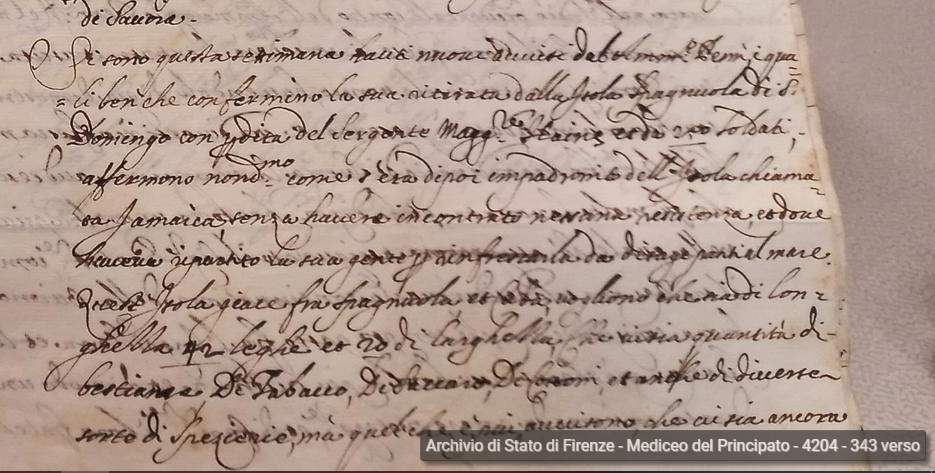 di Savoia.
Si sono questa settimana hauti nuovi avvisi dal Penn, i qua=
=li ben che confermino la sua ritirata dalla Isola Spagnuola di S.
Domingo con pdita del Sergente Magg.re et da 200 soldati,
affermono nond.mo come s'era dipoi impadronito dell'Isola chiama=
ta Jamaica, senza havere incontrato nessuna resistenza, et dove
haveva spartito la sua gente p rinfrescarla da disagi patiti al mare.
Isola giace fra Spagnuola et vogliono che sia di lon=
ghella 42 leghe et 20 di larghella, che vi sia quantità di
bestiame, Di Tabacco, Di Zuccaro, Di Cotoni, et anche di diverse
sorte di Spezierie, ma quel che è più avvisono che vi sia ancora
Archivio di Stato di Firenze - Mediceo del Principato - 4204 - 343 verso